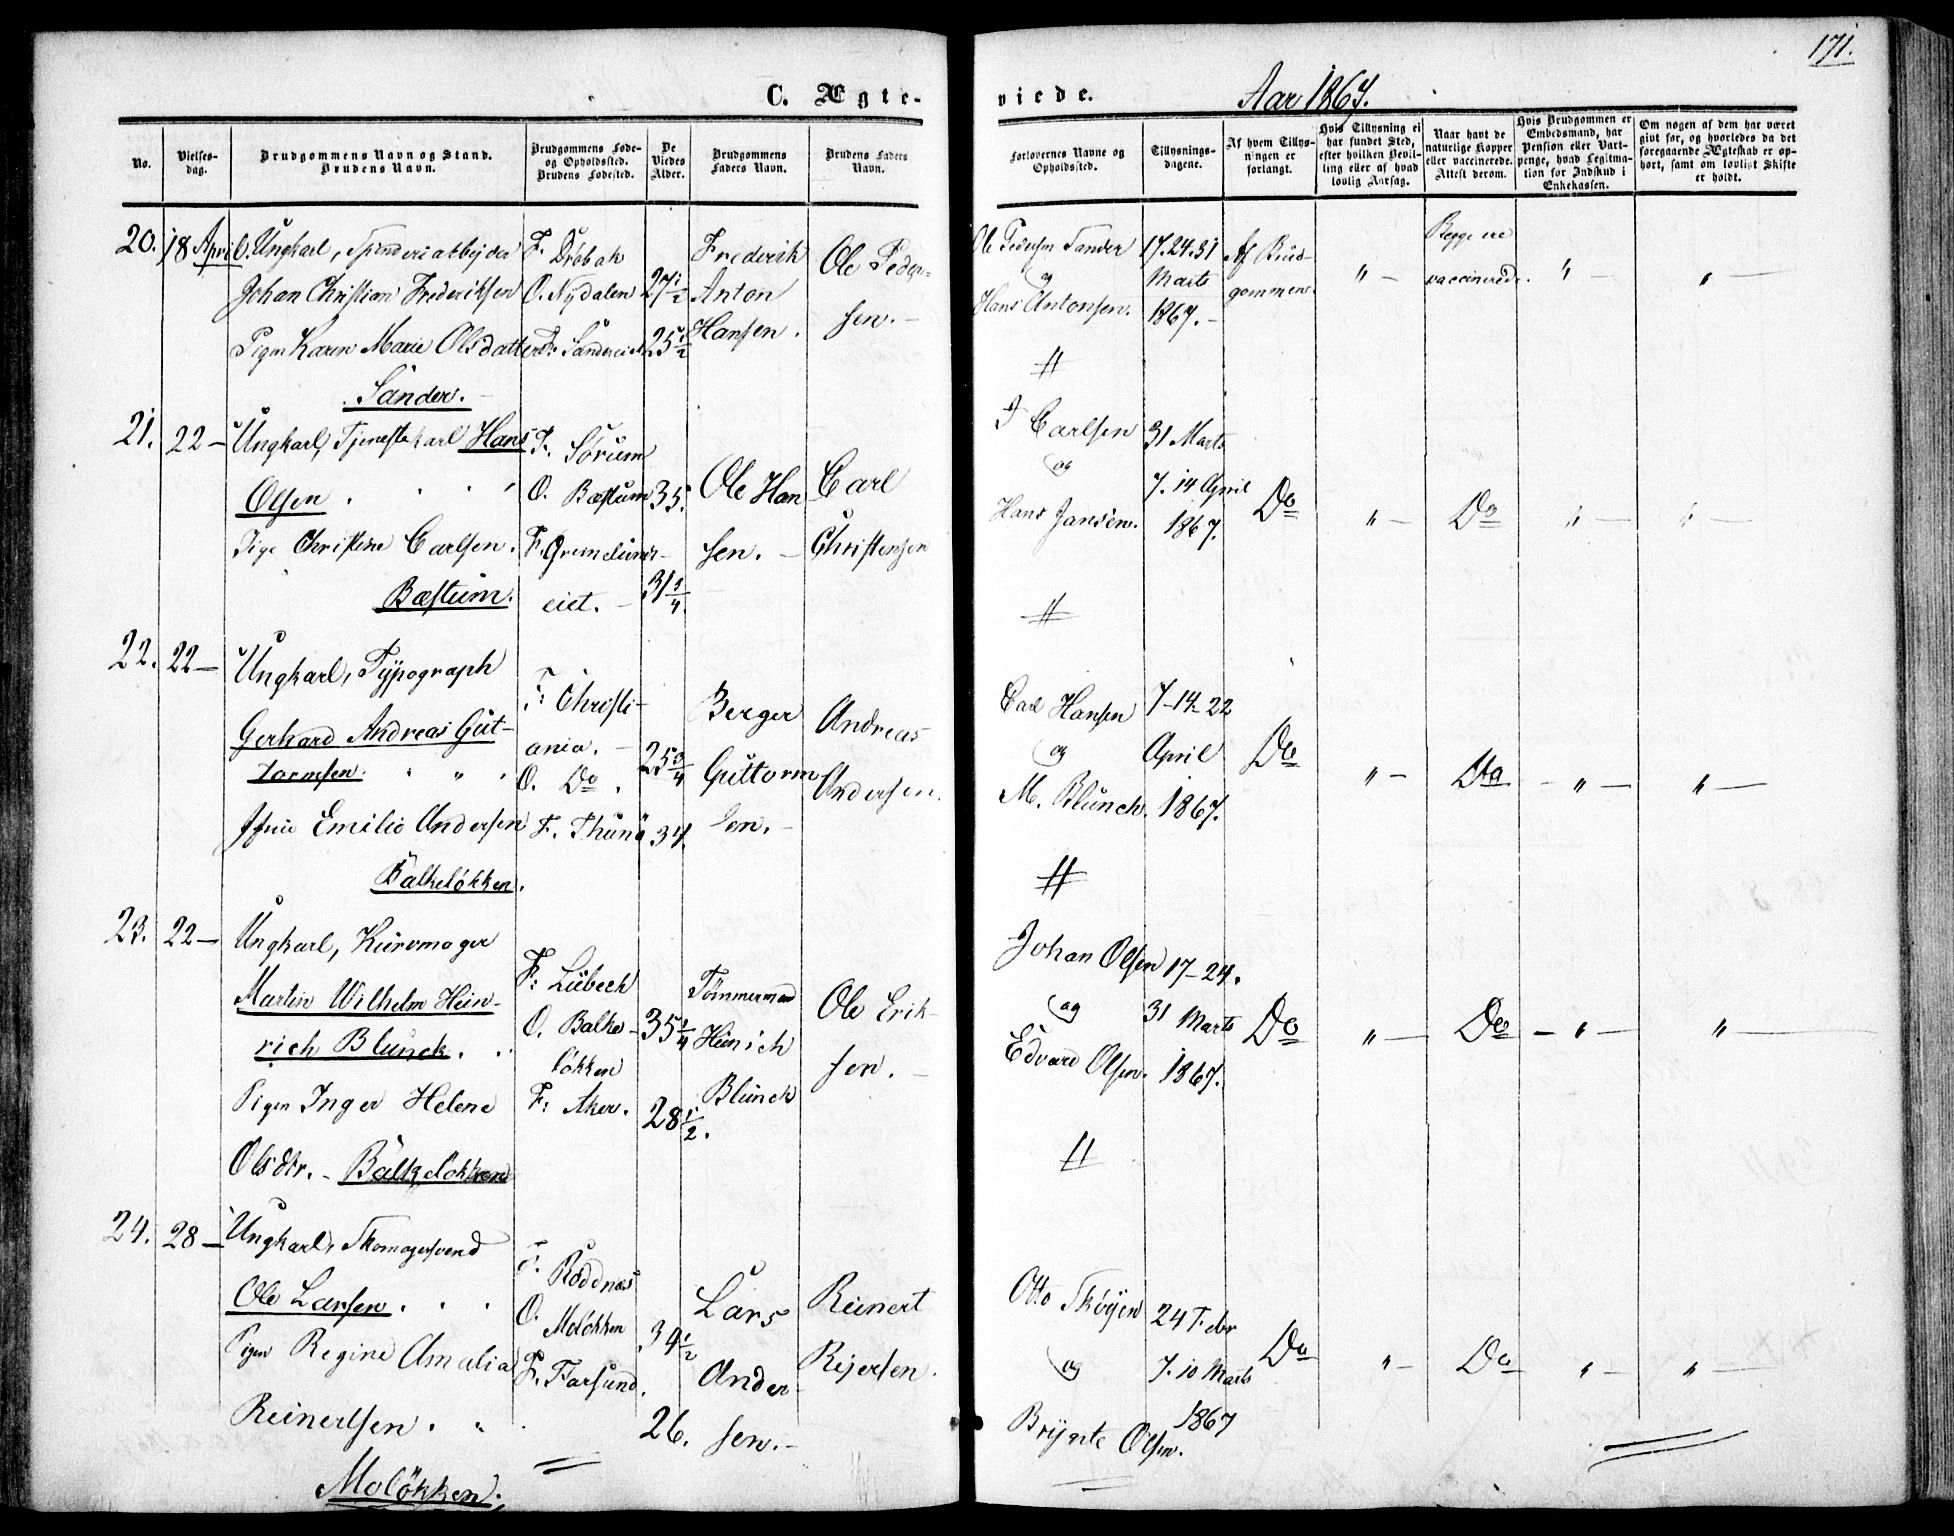 171.
C. Ægte-
viede.
Aar 1867.
No.
Vielses-
dag.
Brudgommens Navn og Stand.
Brudens Navn.
Brudgommens Føde-
og Opholdssted.
Brudens Fødested.
De
Viedes
Alder.
Brudgommens
Faders Navn.
Brudens Faders
Navn.
Forlovernes Navne og
Opholdssted.
Tillysnings-
dagene.
Af hvem Tillys-
ningen er
forlangt.
Hvis Tillysning ei
har fundet Sted,
efter hvilken Bevil-
ling eller af hvad
lovlig Aarsag.
Naar havt de
naturlige Kopper
eller vaccinerede.
Attest derom.
Hvis Brudgommen er
Embedsmand, har
Pension eller Vart-
penge, hvad Legitma-
tion for Indskud i
Enkekassen.
Om nogen af dem har været
givt før, og hvorledes da det
foregaaende Ægteskab er op-
hørt, samt om lovligt Skifte
er holdt.
20.
18 April.
Ungkarl, Spinderiarbeider
Johan Christian Frederiksen
Pigen Karen Marie Olsdatter
Sander.
F. Drøbak
O. Nydalen
F. Sandereiet
27 1/2
25 1/2
Frederik
Anton
Hansen.
Ole Peder-
sen.
Ole Pedersen Sander
og
Hans Antonsen.
17. 24. 31
Marts
1867.
Af Brud-
gommen.
" –
Begge ere
vaccinerede.
" –
" –
21.
22 –
Ungkarl, Tjenestekarl Hans
Olsen
Pige Christine Carlsen.
Bæstum.
F. Sørum
O. Bæstum
F. Grimelunds-
eiet.
35.
31 3/4
Ole Han
sen.
Carl
Christensen
Carlsen
og
Hans Jansen.
31 Marts
7. 14 April
1867.
Do
" –
Do
" –
" –
22.
22 –
Ungkarl, Typograph
Gerhard Andreas Gut-
tormsen
Emilie Andersen
Balkeløkken.
F: Christi-
ania.
O. Do.
F. Thunø
25 3/4
34.
Berger
Guttorm
sen.
Andreas
Andersen.
Carl Hansen
og
M. Blunck.
7–14–22
April
1867.
Do
" –
Do
– " –
" –
23.
22 –
Ungkarl, Kurvmager
Martin Wilhelm Hein-
rich Blunck.
Pigen Inger Helene
Olsdtr. – Balkeløkken
F: Lübeck
O. Balke-
løkken
F: Aker.
35 1/4
28 1/2.
Tømmermand
Heinrich
Blunck
Ole Erik-
sen.
Johan Olsen
og
Edvard Olsen.
17–24.
31 Marts
1867.
Do
" –
Do
– " –
" –
24.
28 –
Ungkarl, Skomagersvend
Ole Larsen
Pigen Regine Amalia
Reinertsen.
Moløkken.
F. Roddnæs
O. Moløkken
F. Farsund.
34 1/2
26.
Lars
Ander-
sen.
Reinert
Rejersen.
Otto Skøyen
og
Brynte Olsen.
24 Febr
7. 10 Marts
1867
Do
" –
Do
" –
" –